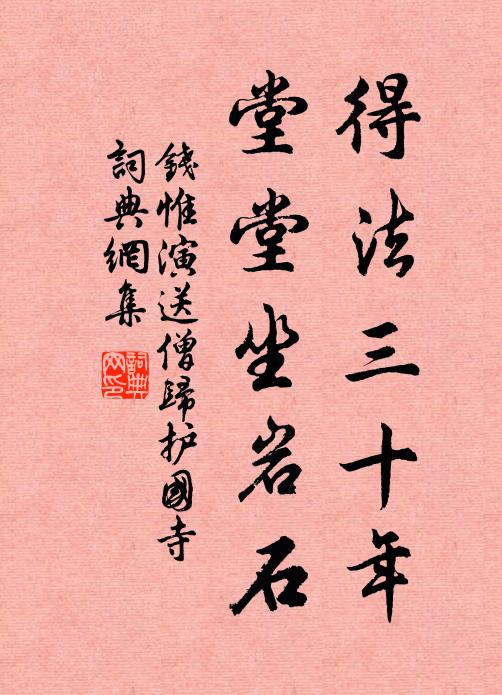 得法三十年
堂堂坐岩石
錢惟演送僧歸护國寺
詞典網集
詞典網印